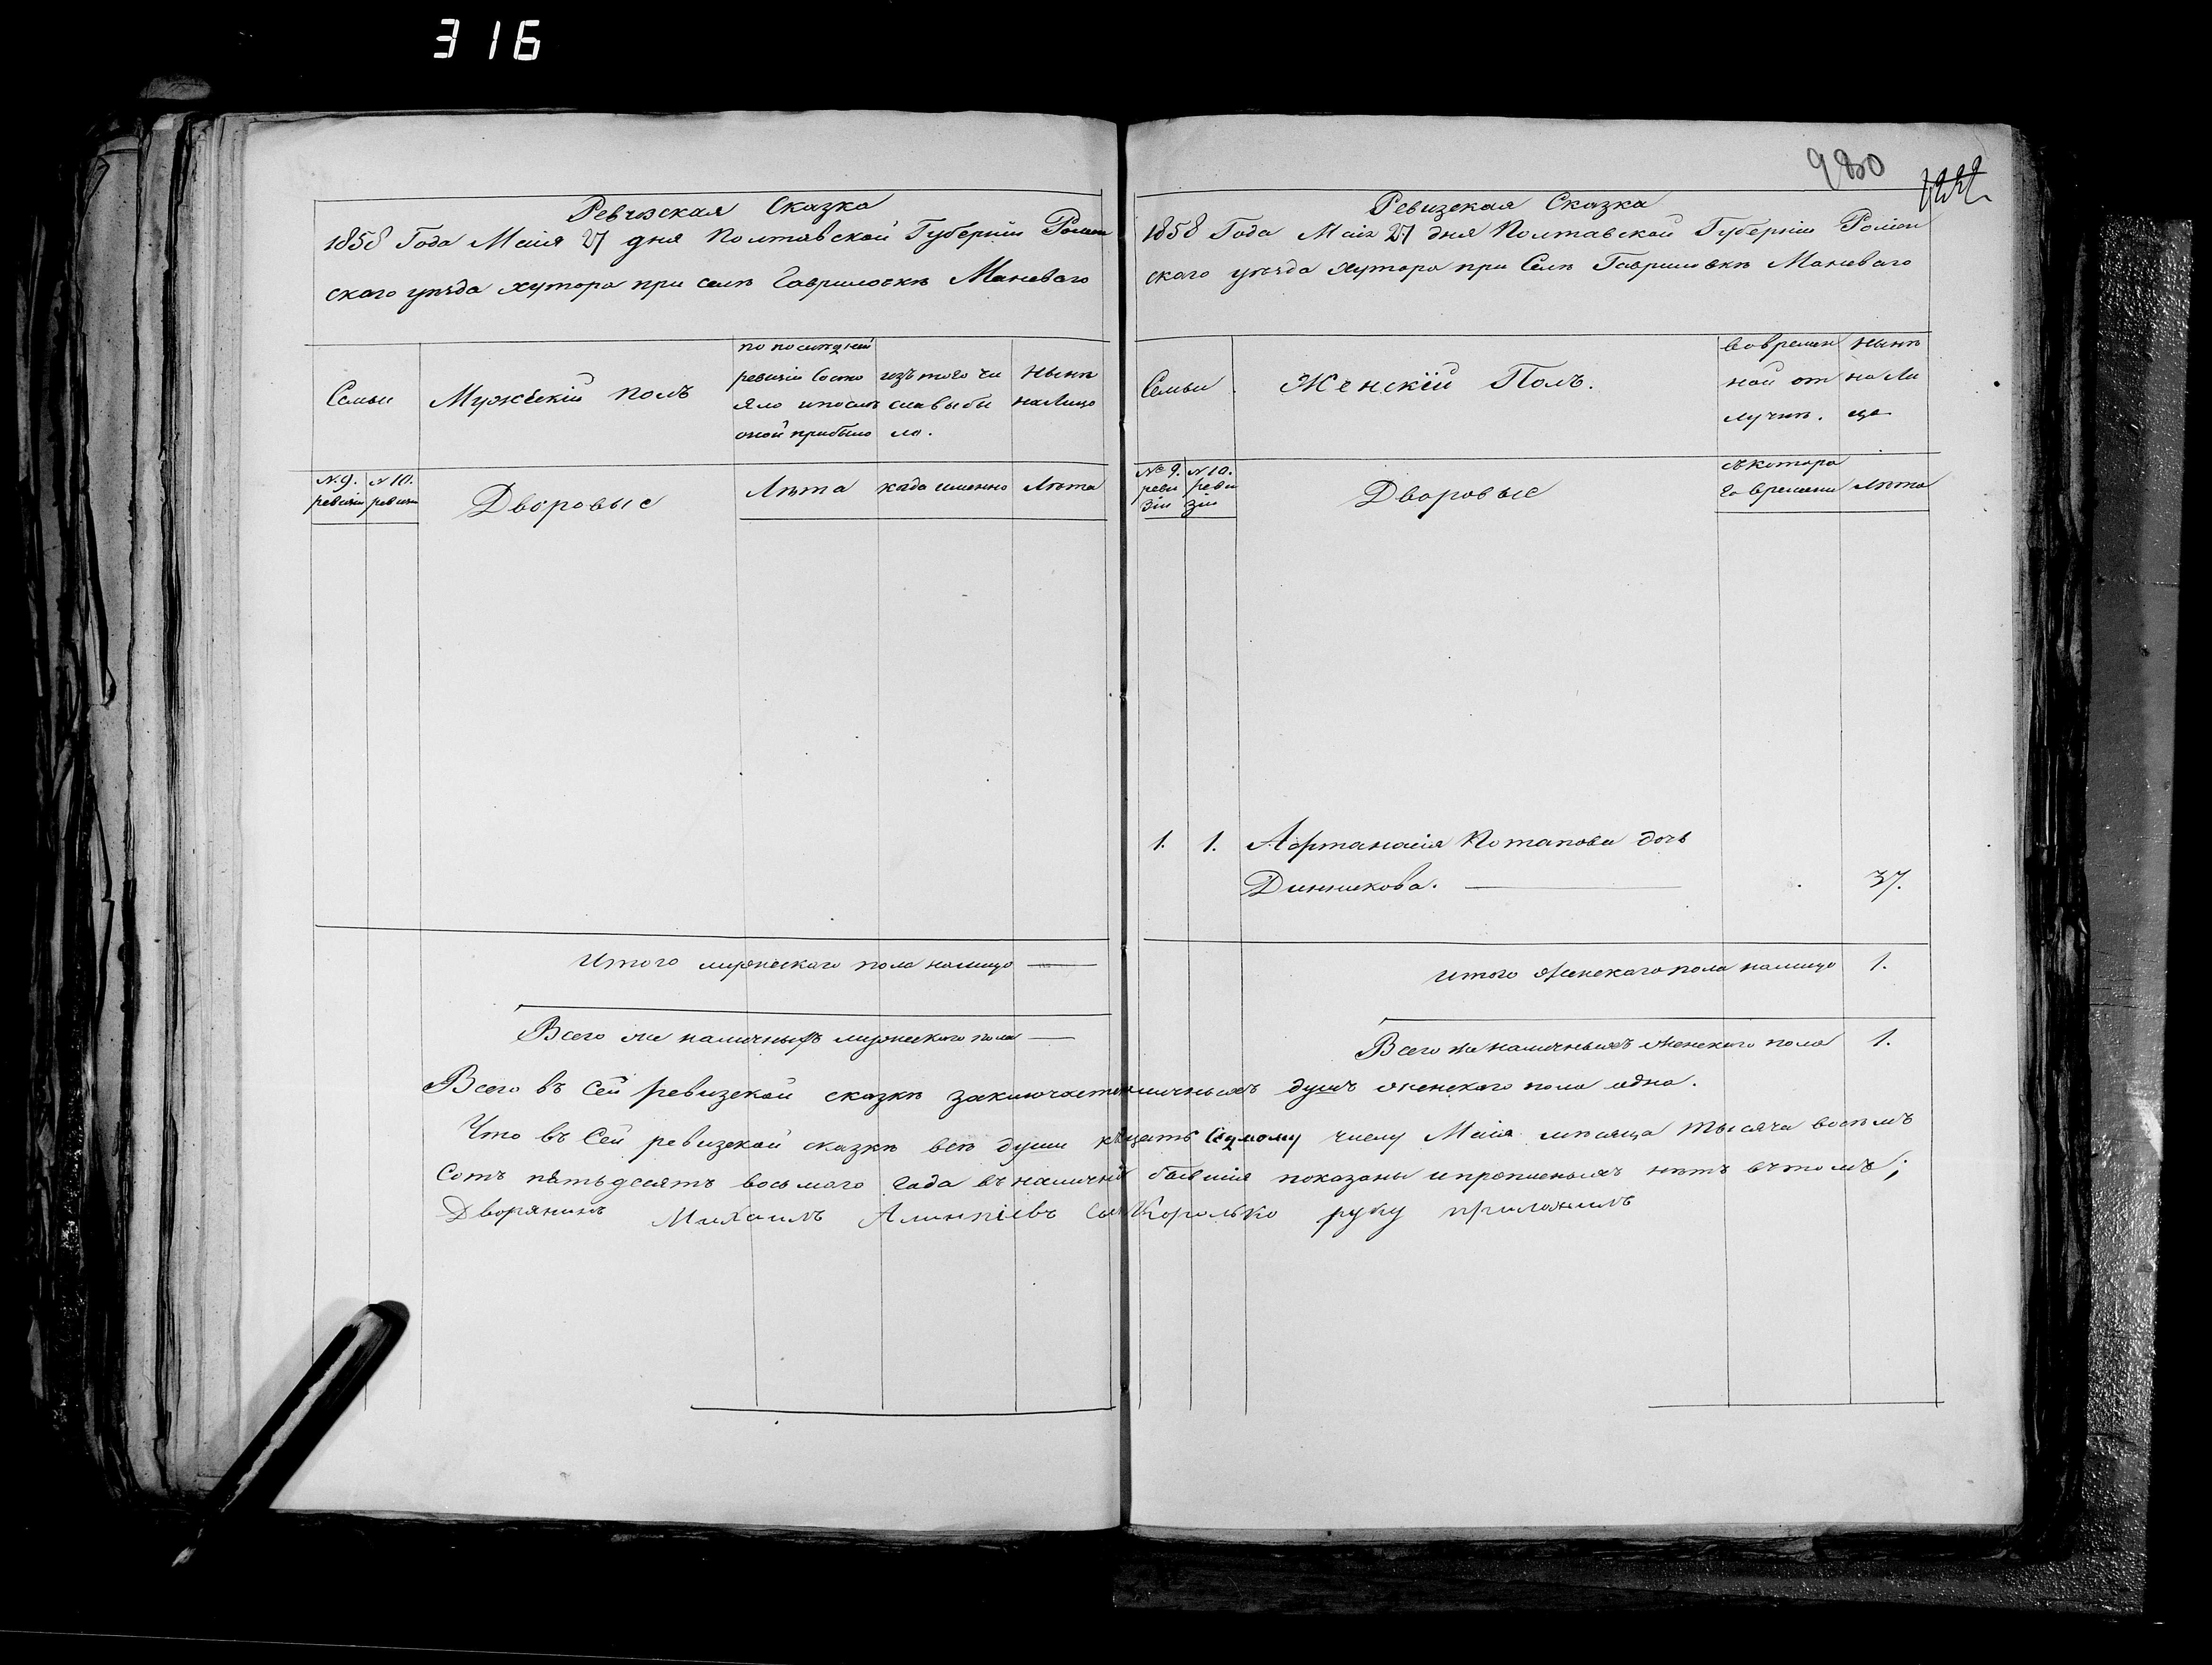 316
980
Ревизская Сказка
1858 Года Маія 27 дня Полтавской Губерніи Ромен
скаго уѣзда хутора при селѣ Гавриловкѣ Маневаго
Семьи
Мужескій полъ
по послѣдней
ревизіи состо
яло и послѣ
оной прибыло
изъ того чи
сла выбы
ло.
Нынѣ
на Лицо
N. 9. ревизіи
N 10. ревизіи
Дворовые
Лѣта
когда именно
Лѣта
Итого мужескаго пола налицо —
Всего же наличныхъ мужескаго пола —
Ревизская Сказка
1858 Года Маія 27 дня Полтавской Губерніи Ромен
скаго уѣзда хутора при Селѣ Гавриловкѣ Маневаго
Семьи
Женскій Полъ.
Во времен
ной от
лучкѣ.
Нынѣ
на Ли
цо
№ 9. реви зіи
N 10. реви зіи
Дворовые
съ котора
го времени
Лѣта
1. 1. Афтанасія Потапова дочь
Динникова. — 37.
Итого Женскаго пола налицо 1.
Всего же наличныхъ женскаго пола 1.
Всего въ Сей ревизской сказкѣ заключается наличныхъ душъ женскаго пола одна.
Что въ Сей ревизской сказкѣ всѣ души къ Седмому числу Маія мѣсяца тысяча восѣмъ
Сотъ пятьдесятъ восьмого Года въ наличнй бывшія показаны и прописныхъ нѣтъ въ томъ;
Дворянинъ Михаилъ Алимпіевъ Сынъ Королько руку приложилъ